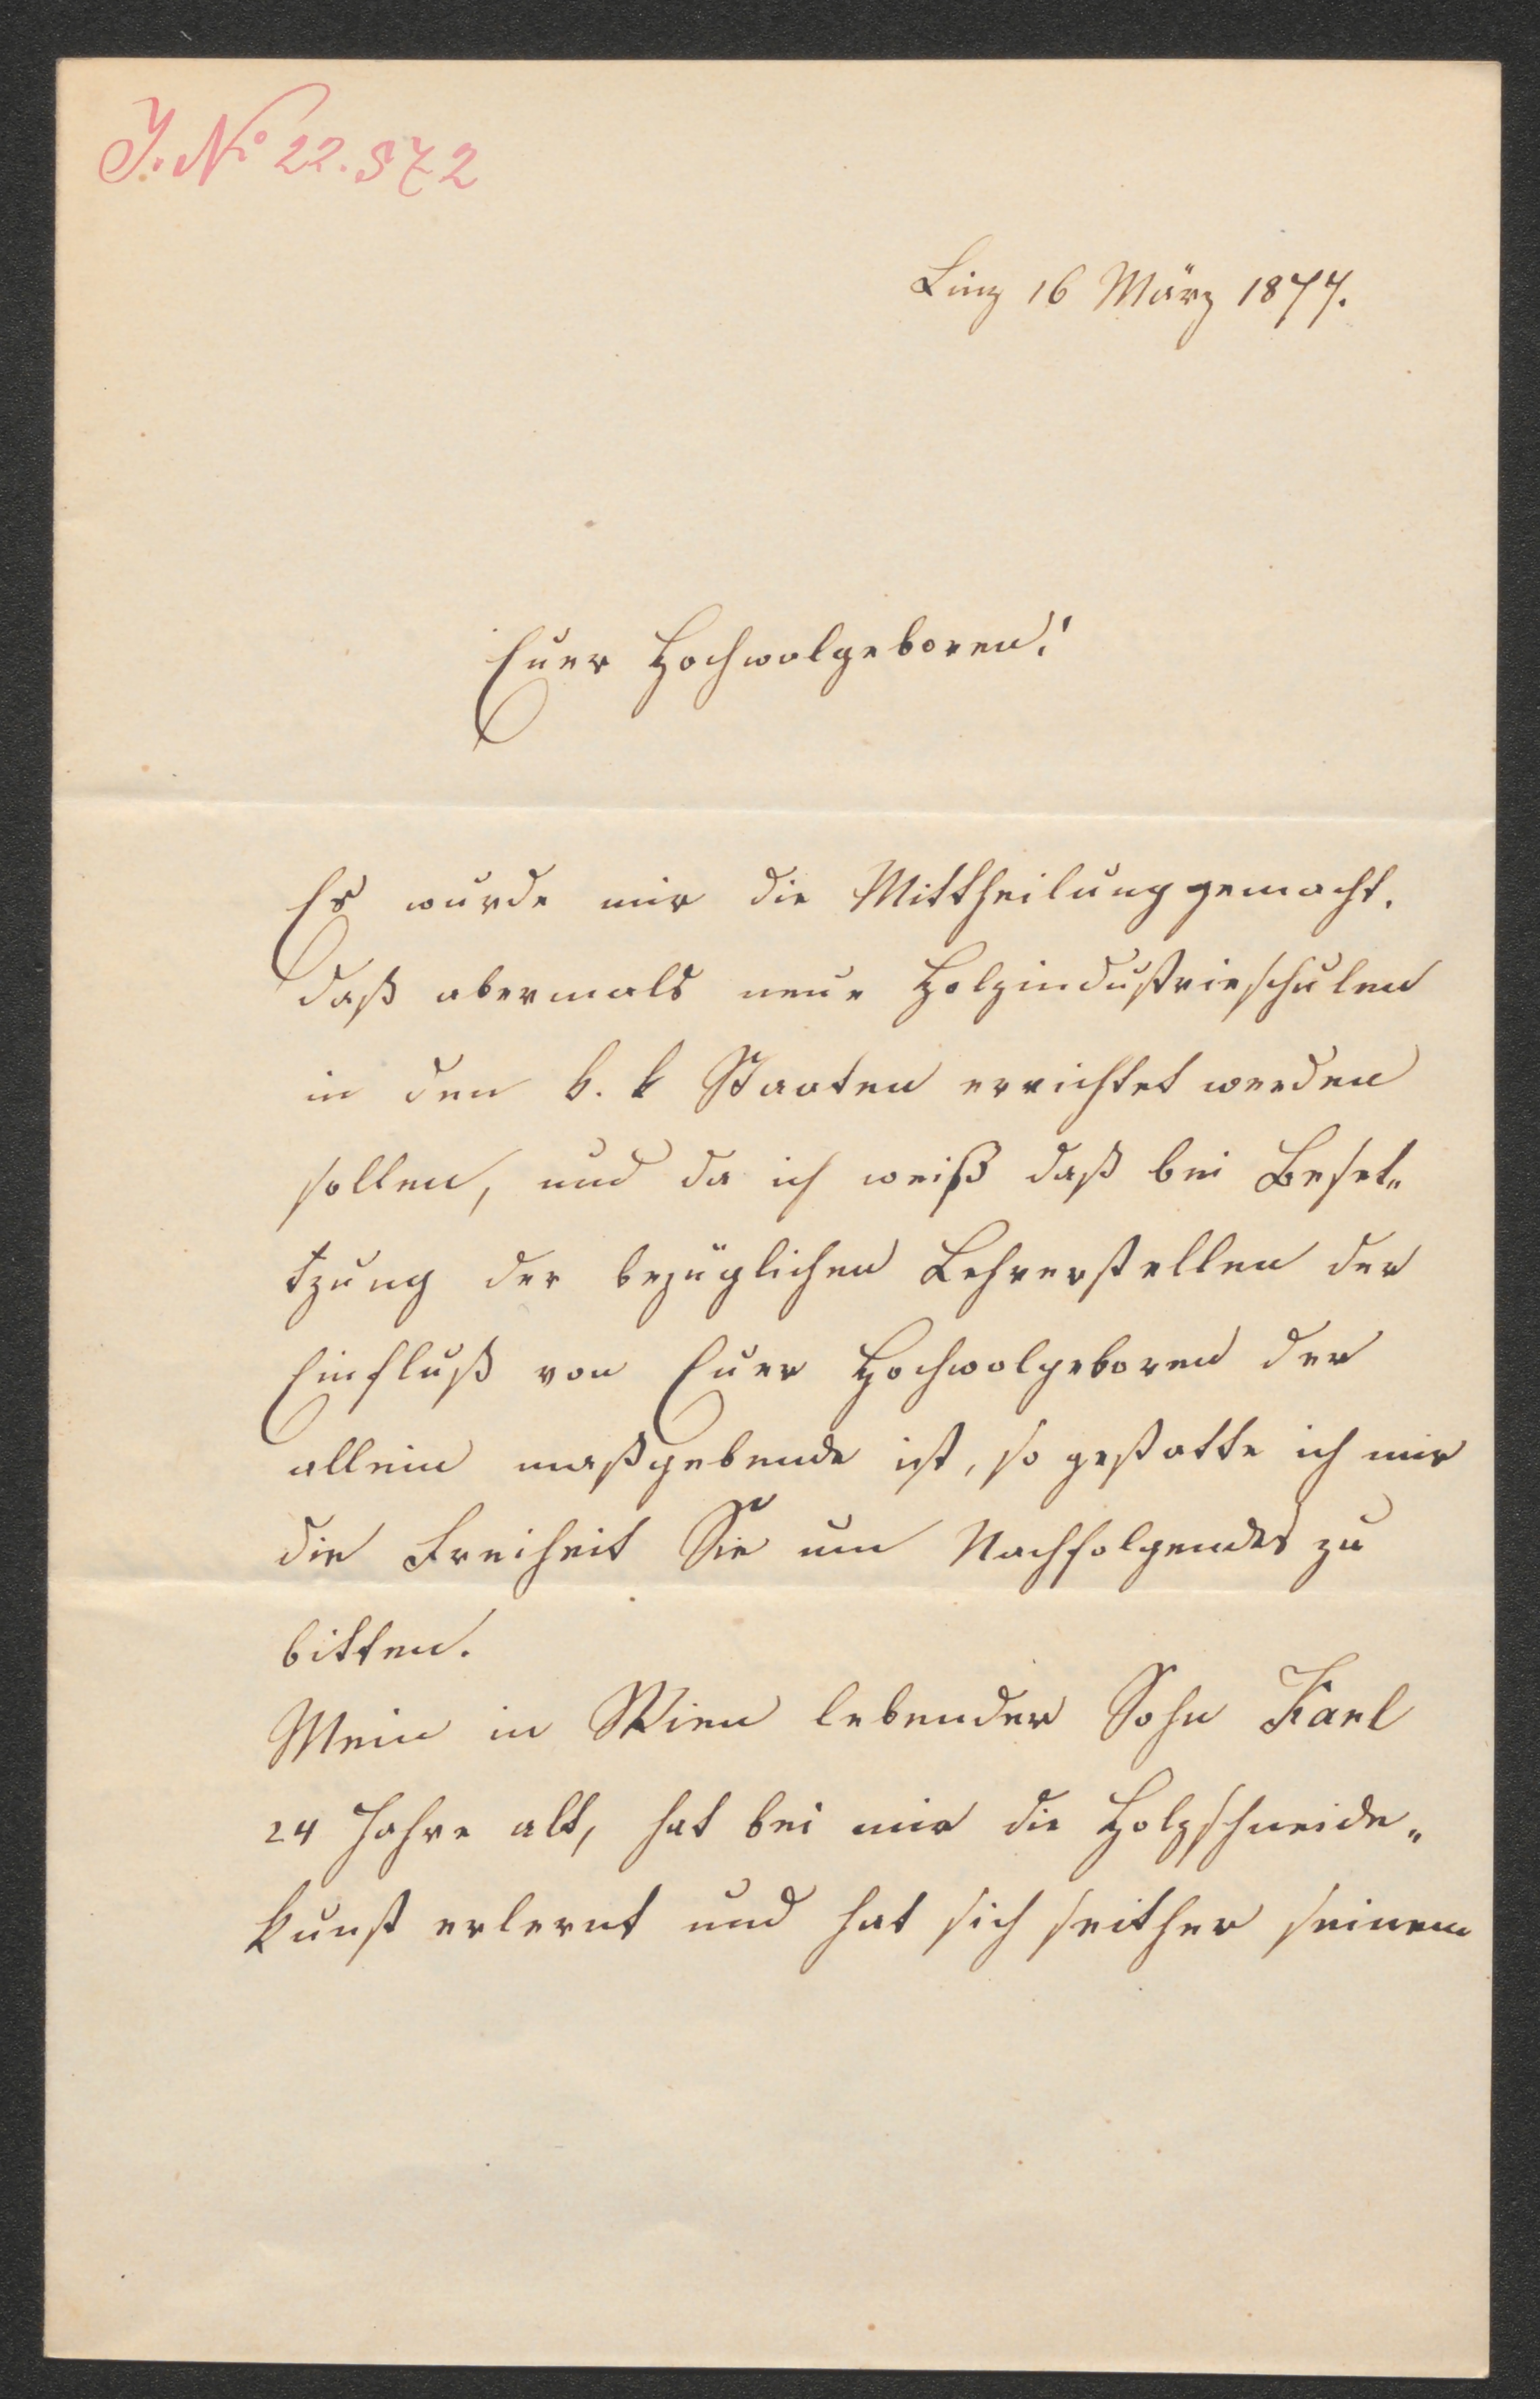 J. No 22.572
Linz 16 März 1877.
Euer Hochwolgeboren!
Es wurde mir die Mittheilung gemacht,
daß abermals neue Holzindustrieschulen
in den k. k Staaten errichtet werden
sollen, und da ich weiß daß bei Beset„
tzung der bezüglichen Lehrerstellen der
Einfluß von Euer Hochwolgeboren der
allein maßgebende ist, so gestatte ich mir
die Freiheit Sie um Nachfolgendes zu
bitten.
Mein in Wien lebender Sohn Karl
24 Jahre alt, hat bei mir die Holzschneide„
kunst erlernt und hat sich seither seinem